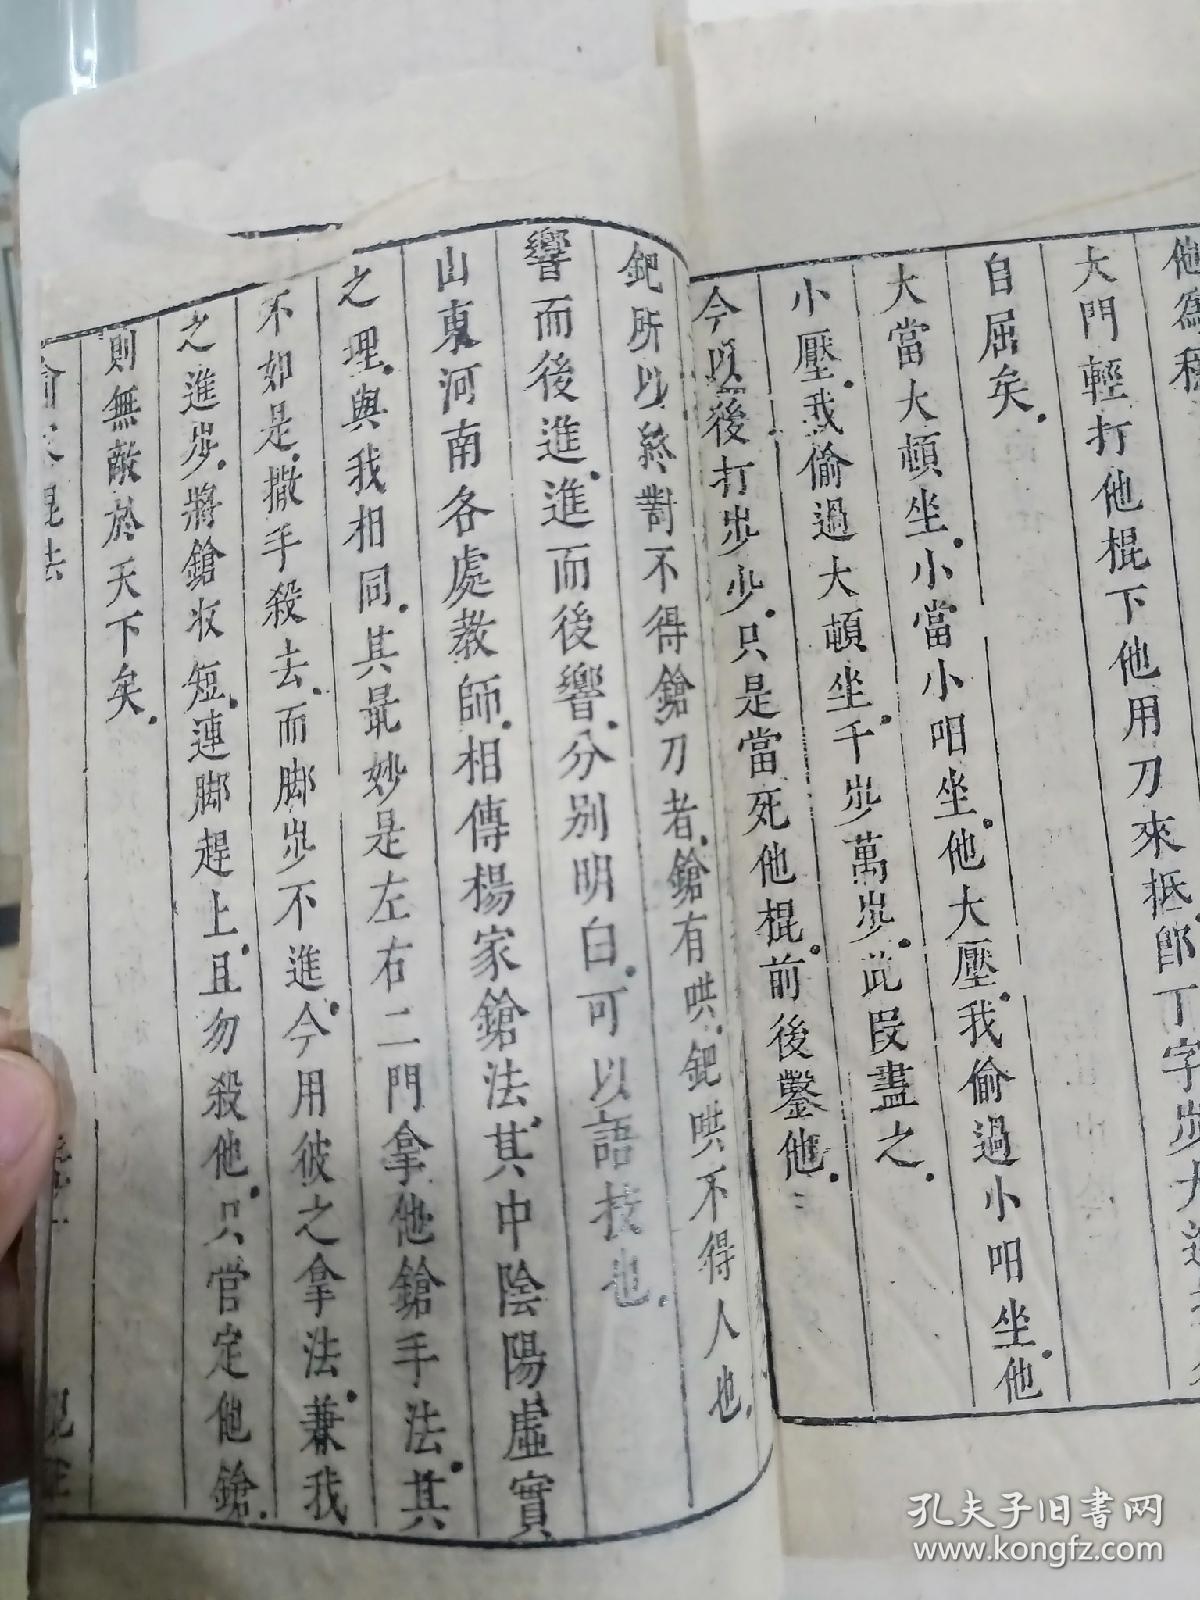 他為種
大門輕打他棍下他用刀來抵卽丁字步大進
自屈矣。
大當大頓坐。小當小呾坐。他大壓。我偷過小呾坐。他
小壓。我偷過大頓坐。千步萬步。此段盡之。
今以後打步步。只是當死他棍。前後鑿他。
鈀所以終對不得鎗刀者。鎗有哄。鈀哄不得人也。
響而後進。進而後響。分別明白。可以語技也。
山東河南各處教師。相傳楊家鎗法。其中陰陽虛實
之理。與我相同。其最妙是左右二門拿他鎗手法。其
不如是。撒手殺去。而脚步不進。今用彼之拿法。兼我
之進步。將鎗收短。連脚趕上。且勿殺他。只管定他鎗。
則無敵於天下矣。
棍法
孔夫子旧书网
www.kongfz.com